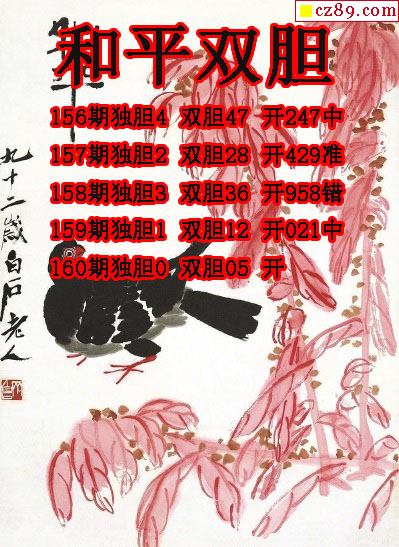 cz89.com
和平双胆
156期独胆4 双胆47 开247中
157期独胆2 双胆28 开429准
158期独胆3 双胆36 开958错
159期独胆1 双胆12 开021中
160期独胆0 双胆05 开
九十二岁白石老人